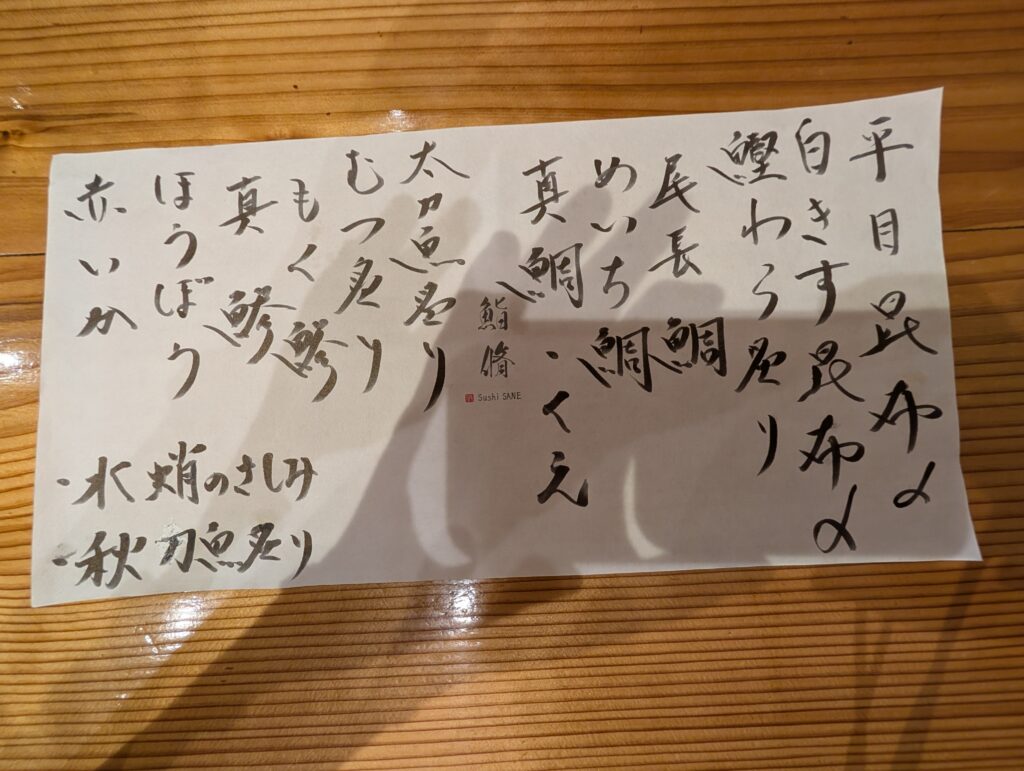 平目昆布〆
白きす昆布〆
鰹わら炙り
尾長鯛
めいち鯛
真鯛・くえ
鮨脩
Sushi SANE
太刀魚炙り
むつ炙り
もく鯵
真鯵
ほうぼう
赤いか
・水蛸のさしみ
・秋刀魚炙り